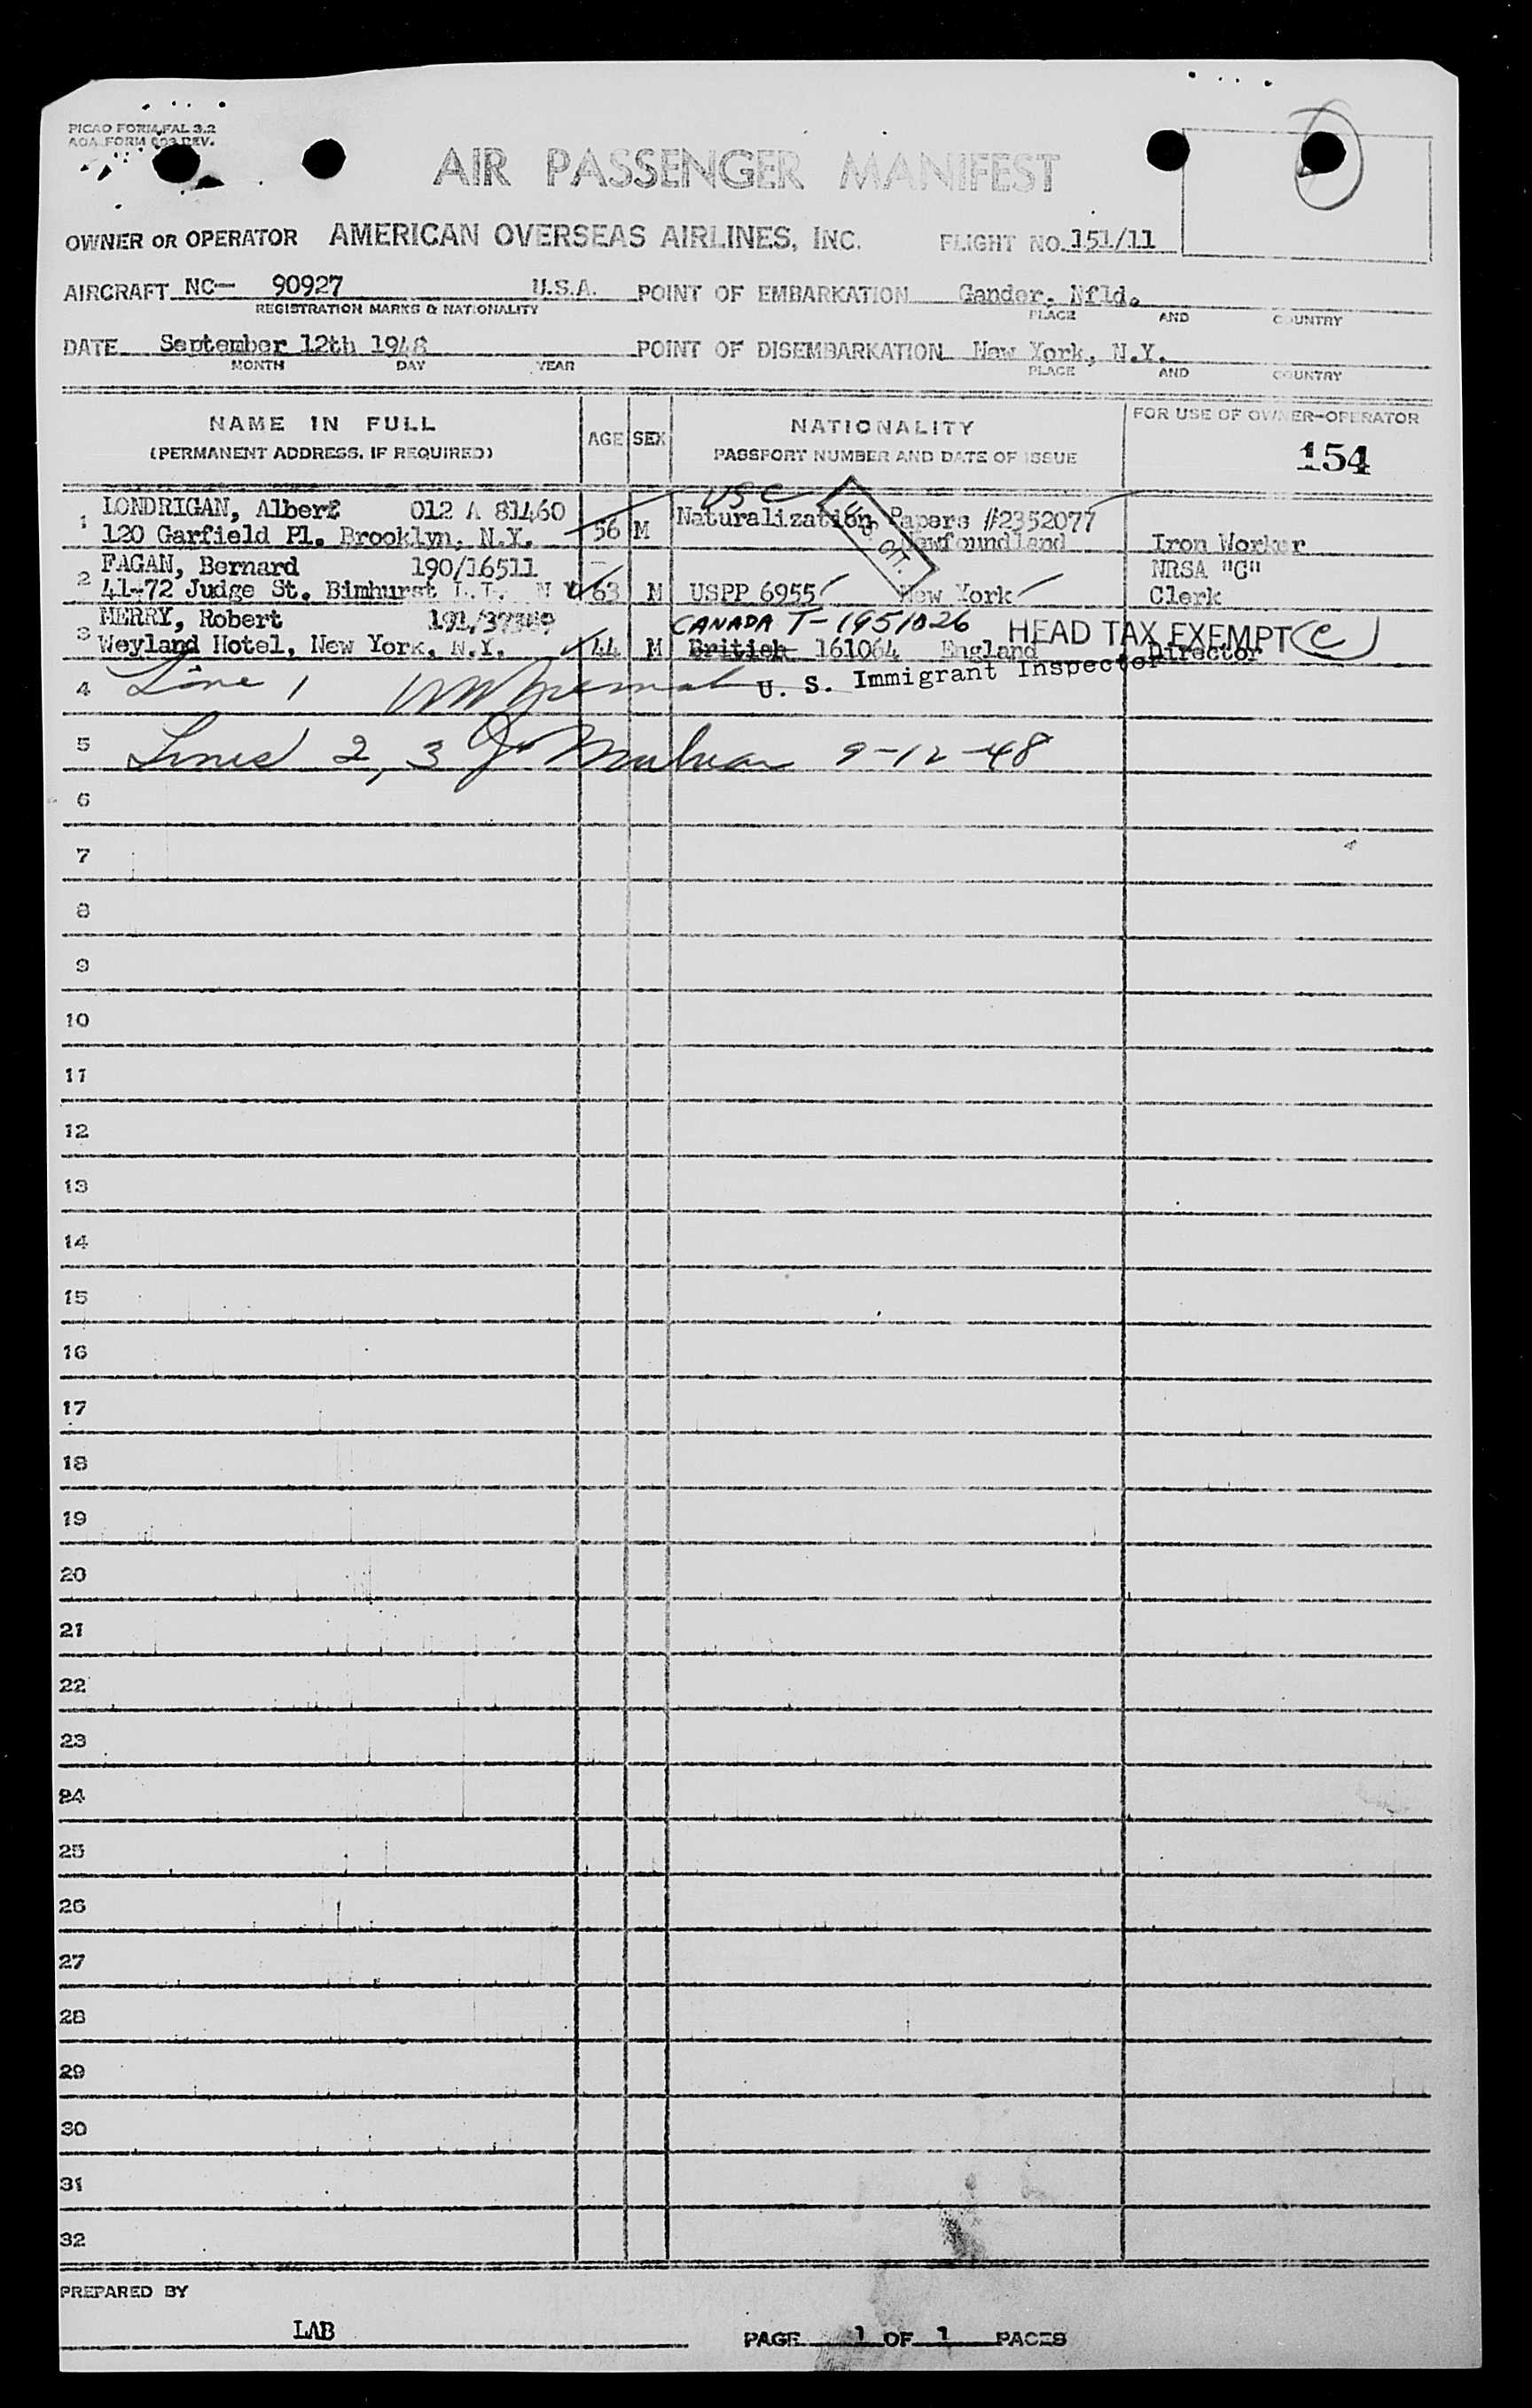 PICAO FORM FAL 3.2
AOA FORM 003 REV.
AIR PASSENGER MANIFEST
OWNER OR OPERATOR AMERICAN OVERSEAS AIRLINES, INC. FLIGHT NO. 151/11
AIRCRAFT NC- 90927 U.S.A. POINT OF EMBARKATION Gander, Nfld.
REGISTRATION MARKS & NATIONALITY PLACE AND COUNTRY
DATE September 12th 1948 POINT OF DISEMBARKATION New York, N.Y.
MONTH DAY YEAR PLACE AND COUNTRY
NAME IN FULL
(PERMANENT ADDRESS, IF REQUIRED)
AGE SEX
NATIONALITY
PASSPORT NUMBER AND DATE OF ISSUE
FOR USE OF OWNER-OPERATOR
154
USC
1 LONDRIGAN, Albert 012 A 81460 Naturalization Papers #2352077
120 Garfield Pl. Brooklyn, N.Y. 56 M Newfoundland Iron Worker
2 FAGAN, Bernard 190/16511 NRSA "C"
41-72 Judge St. Bimhurst L.I. N Y 63 M USPP 6955 New York Clerk
3 MERRY, Robert CANADA T-1951026 HEAD TAX EXEMPT (C)
Weyland Hotel, New York, N.Y. 44 M British 161064 England Director
4 Line 1 U. S. Immigrant Inspector
5 Lines 2, 3 9-12-48
6
7
8
9
10
11
12
13
14
15
16
17
18
19
20
21
22
23
24
25
26
27
28
29
30
31
32
PREPARED BY
LAB
PAGE 1 OF 1 PAGES